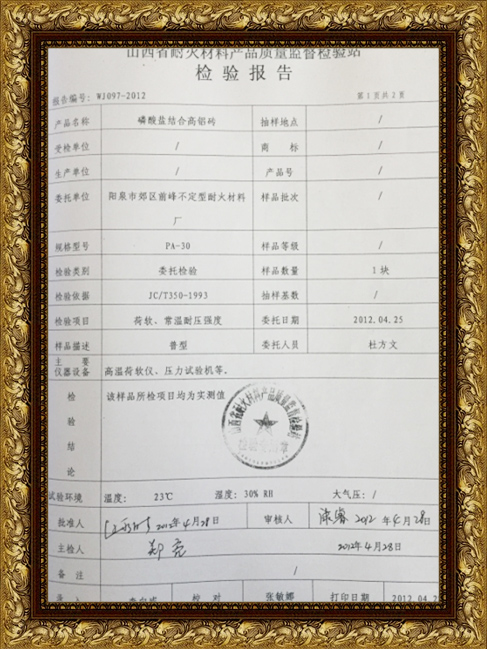 山西省耐火材料产品质量监督检验站
检验报告
报告编号：WJ097-2012 第1页共2页
产品名称 磷酸盐结合高铝砖 抽样地点 /
受检单位 / 商标 /
生产单位 / 产品号 /
委托单位 阳泉市郊区前峰不定型耐火材料 样品批次 /
厂
规格型号 PA-30 样品等级 /
检验类别 委托检验 样品数量 1块
检验依据 JC/T350-1993 抽样基数 /
检验项目 荷软、常温耐压强度 委托日期 2012.04.25
样品描述 普型 委托人员 杜方文
主要
仪器设备 高温荷软仪、压力试验机等。
检验结论 该样品所检项目均为实测值
山西省耐火材料产品质量监督检验站
试验环境 温度： 23℃ 湿度：30% RH 大气压：/
批准人 2012年4月28日 审核人 2012年4月28日
主检人 郑亮 2012年4月28日
备注 /
录入 校对 张敏娜 打印日期 2012.04.25